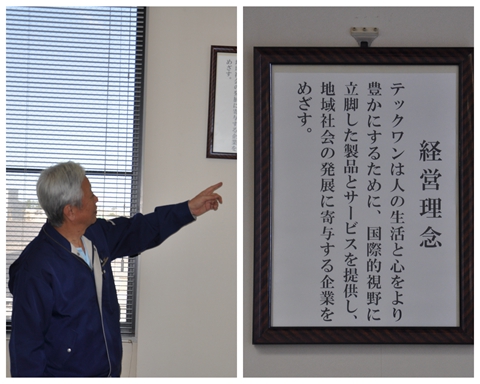 経営理念
テックワンは人の生活と心をより
豊かにするために、国際的視野に
立脚した製品とサービスを提供し、
地域社会の発展に寄与する企業を
めざす。